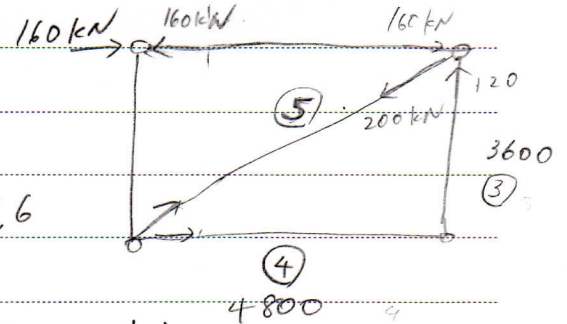 160kN 160kN 160kN
⑤ 120
200kN
3600
③
6
④
4800